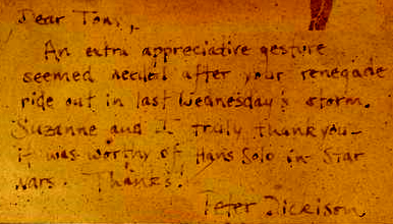 Dear Tom,
An extra appreciative gesture
seemed needed after your renegade
ride out in last Wednesday's storm.
Suzanne and I truly thank you—
it was worthy of Hans Solo in Star
Wars. Thanks!
Peter Dickison